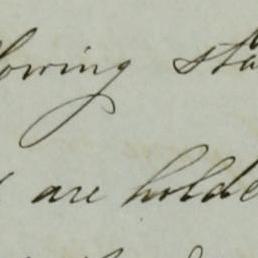 lowing sta
are holde